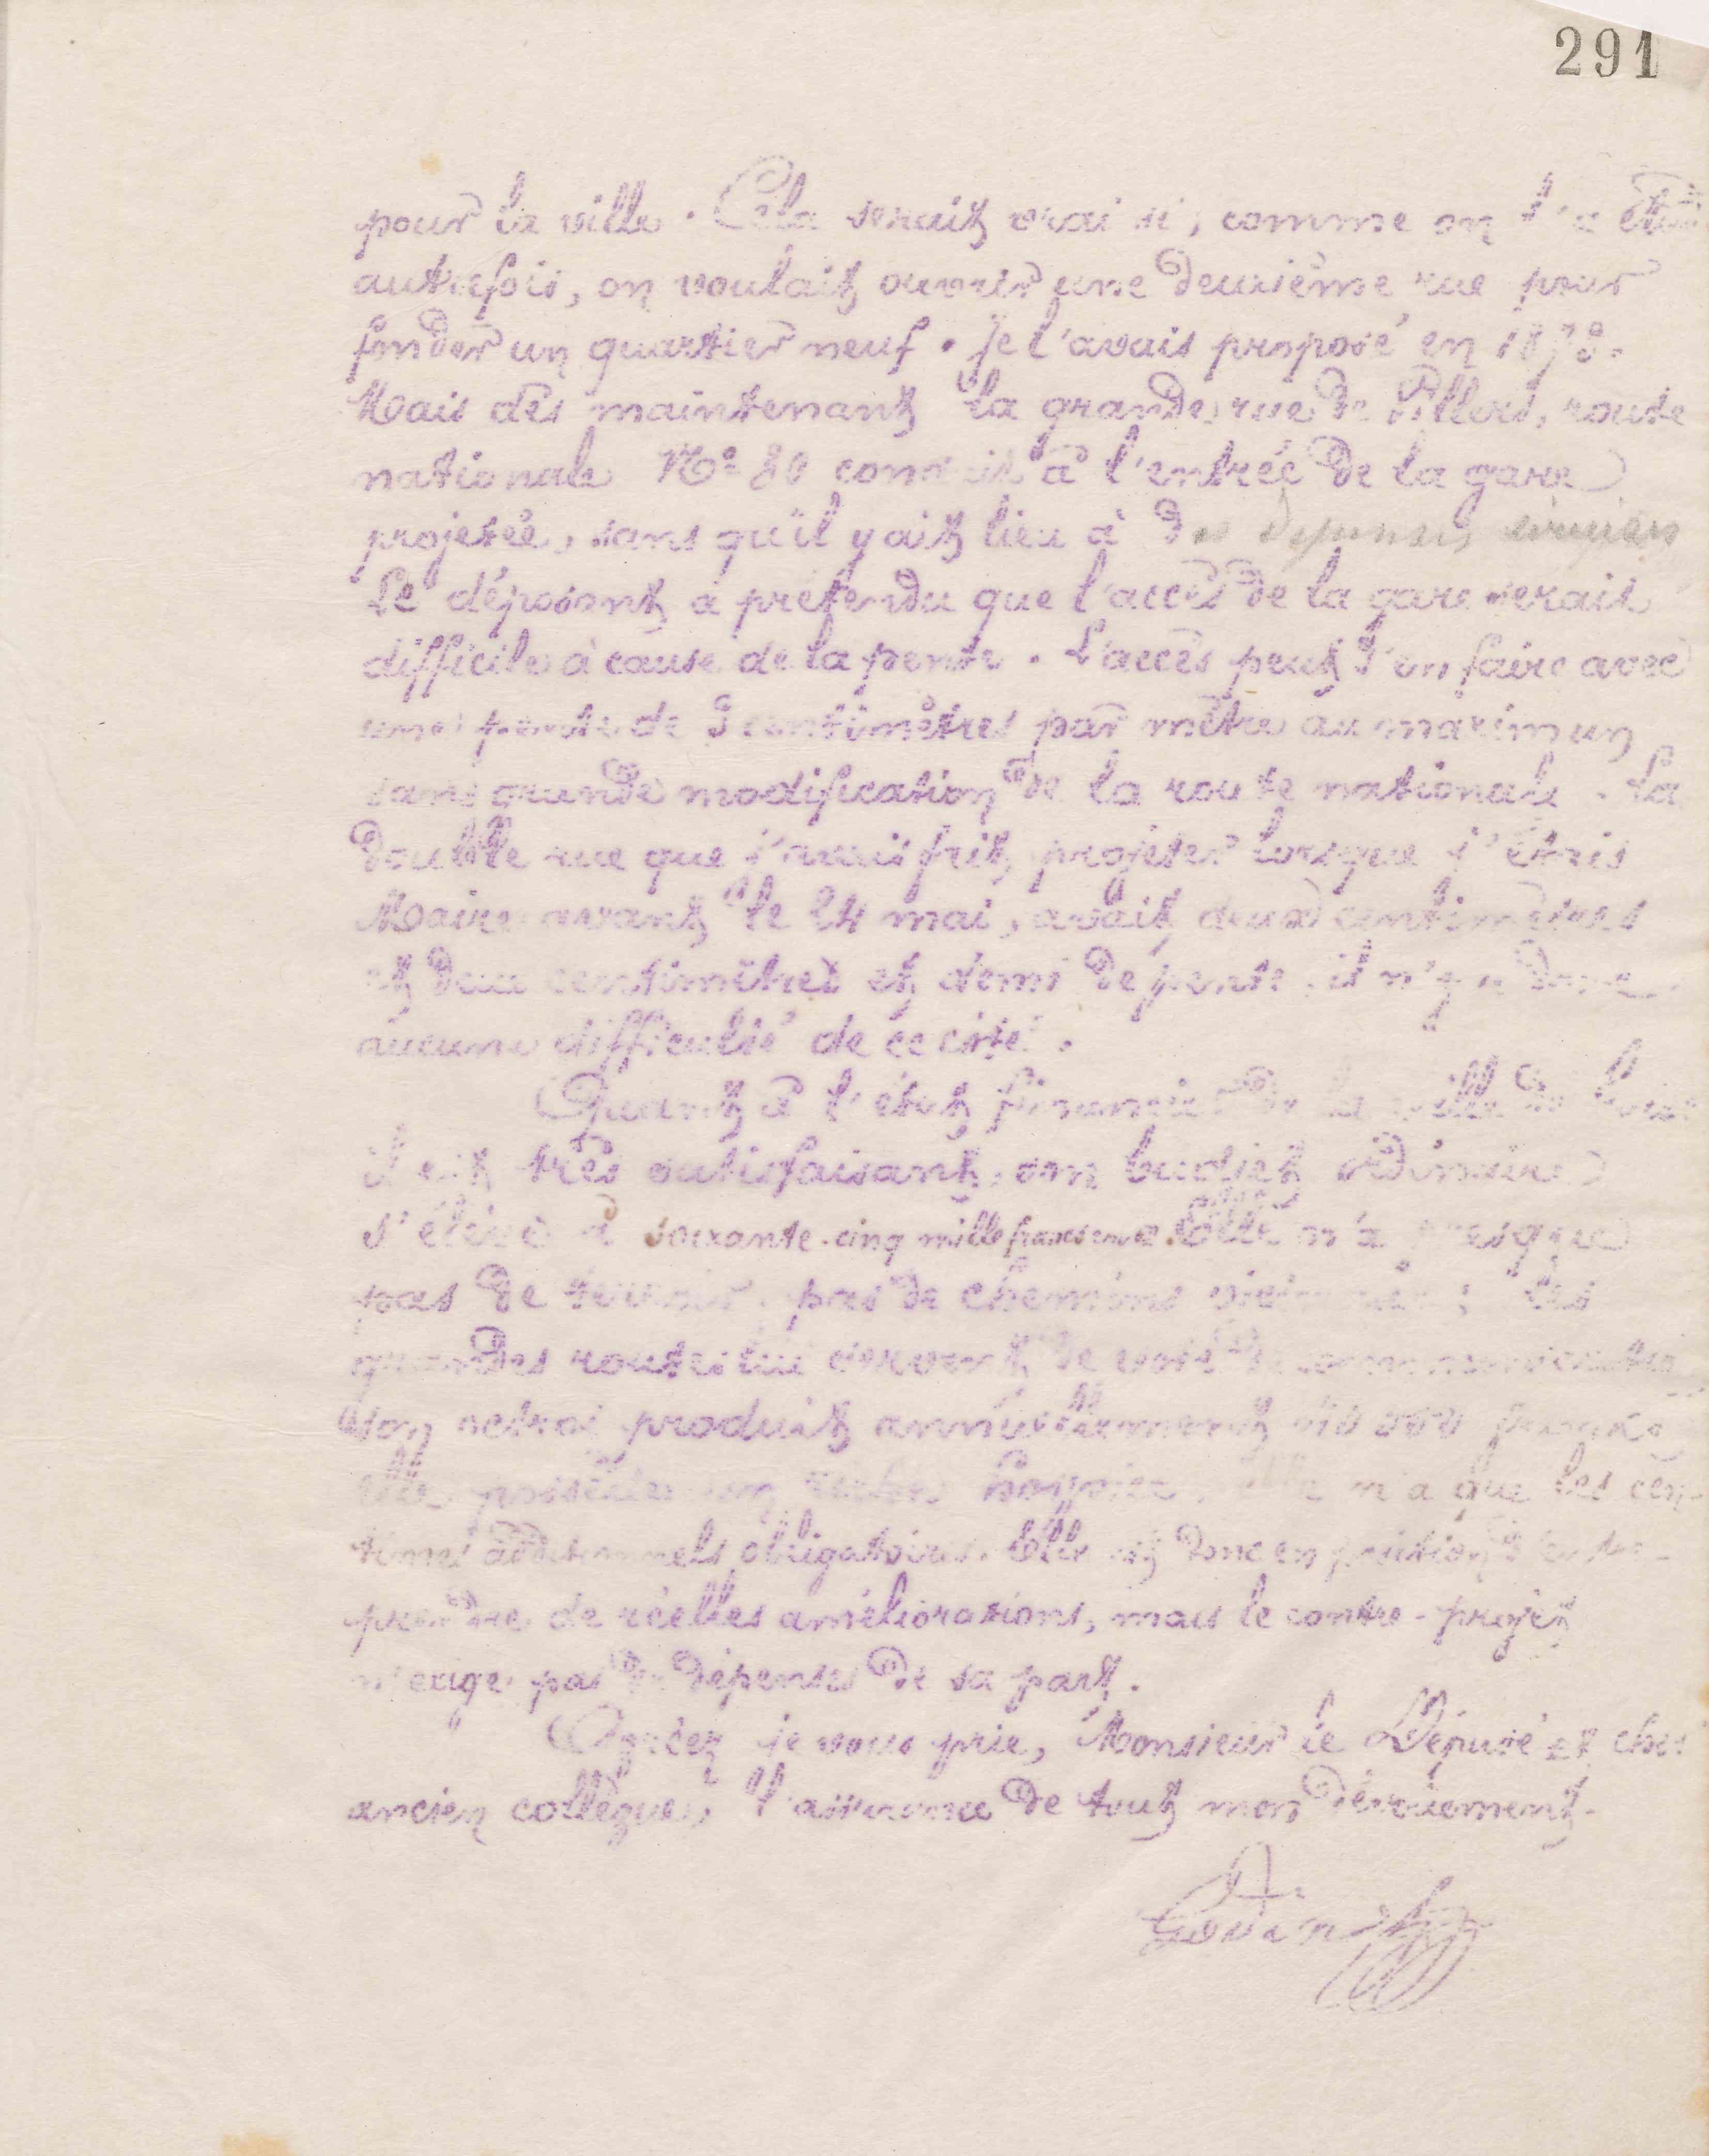 291
pour la ville. Cela serait vrai si, comme on l'a
autrefois, on voulait ouvrir une deuxième rue pour
fonder un quartier neuf. Je l'avais proposé en 1878.
Mais dès maintenant la grande rue de Villers, route
nationale No 30 conduit à l'entrée de la gare
projetée, sans qu'il y ait lieu à des dépenses
Le déposant a prétendu que l'accès de la gare serait
difficile à cause de la pente. L'accès peut s'en faire avec
une pente de 3 centimètres par mètre au maximum
sans grande modification de la route nationale. La
double rue que j'avais fait projeter lorsque j'étais
Maire avant le 24 mai, avait deux centimètres
et deux centimètres et demi de pente, il n'y a donc
aucune difficulté de ce côté.
Quant à l'état financier de la ville de
il est très satisfaisant, son budget ordinaire
s'élève à soixante-cinq mille francs Elle n'a presque
pas de terroir, pas de chemins vicinaux; les
grandes routes lui servent de voie de communication
Son octroi produit annuellement francs
elle possède un riche hospice. Elle n'a que les cen-
times additionnels obligatoires. Elle est donc en position d'entre-
prendre de réelles améliorations, mais le contre-projet
n'exige pas de dépenses de sa part.
Agréez je vous prie, Monsieur le Député et cher
ancien collègue, l'assurance de tout mon dévouement.
Godin